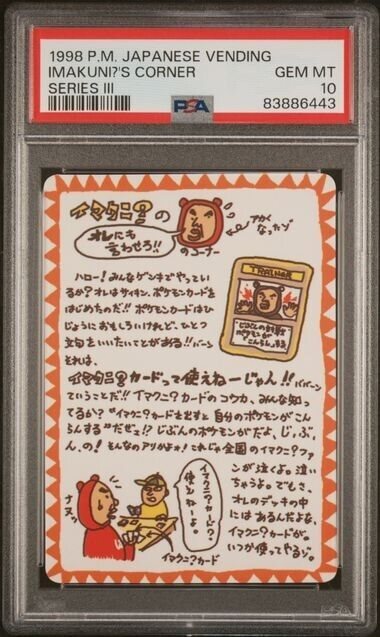 1998 P.M. JAPANESE VENDING
IMAKUNI?'S CORNER
GEM MT
SERIES III
10
PSA
83886443
イマクニ?の
オレにも
言わせろ!!
のコーナー
アカく
なったゾ
ハロー!みんなゲンキでやってい
るか?オレはサイキン、ポケモンカードを
はじめたのだ!!ポケモンカードはひ
じょうにおもしろいけれど、ひとつ
文句をいいたいことがある!!ババーン
それは、
TRAINER
じぶんの
ポケモンが
こんらんする
イマクニ?カードって使えねーじゃん!!ババババーン
ということだ!!イマクニ?カードのコウカ、みんな知っ
てるか?"イマクニ?カードを出すと自分のポケモンがこん
らんする"だぜェ!?じぶんのポケモンがだよ、じ、ぶ、
ん、の!そんなのアリかよォ!これじゃ全国のイマクニ?ファ
ンが泣くよ。泣い
ちゃうよ。でもさ、
オレのデッキの中
にはあるんだよな、
イマクニ?カードが。
いつか使ってやるゾ。
ナヌッ
イマクニ?カード?
使えねーよ。
イマクニ?カード